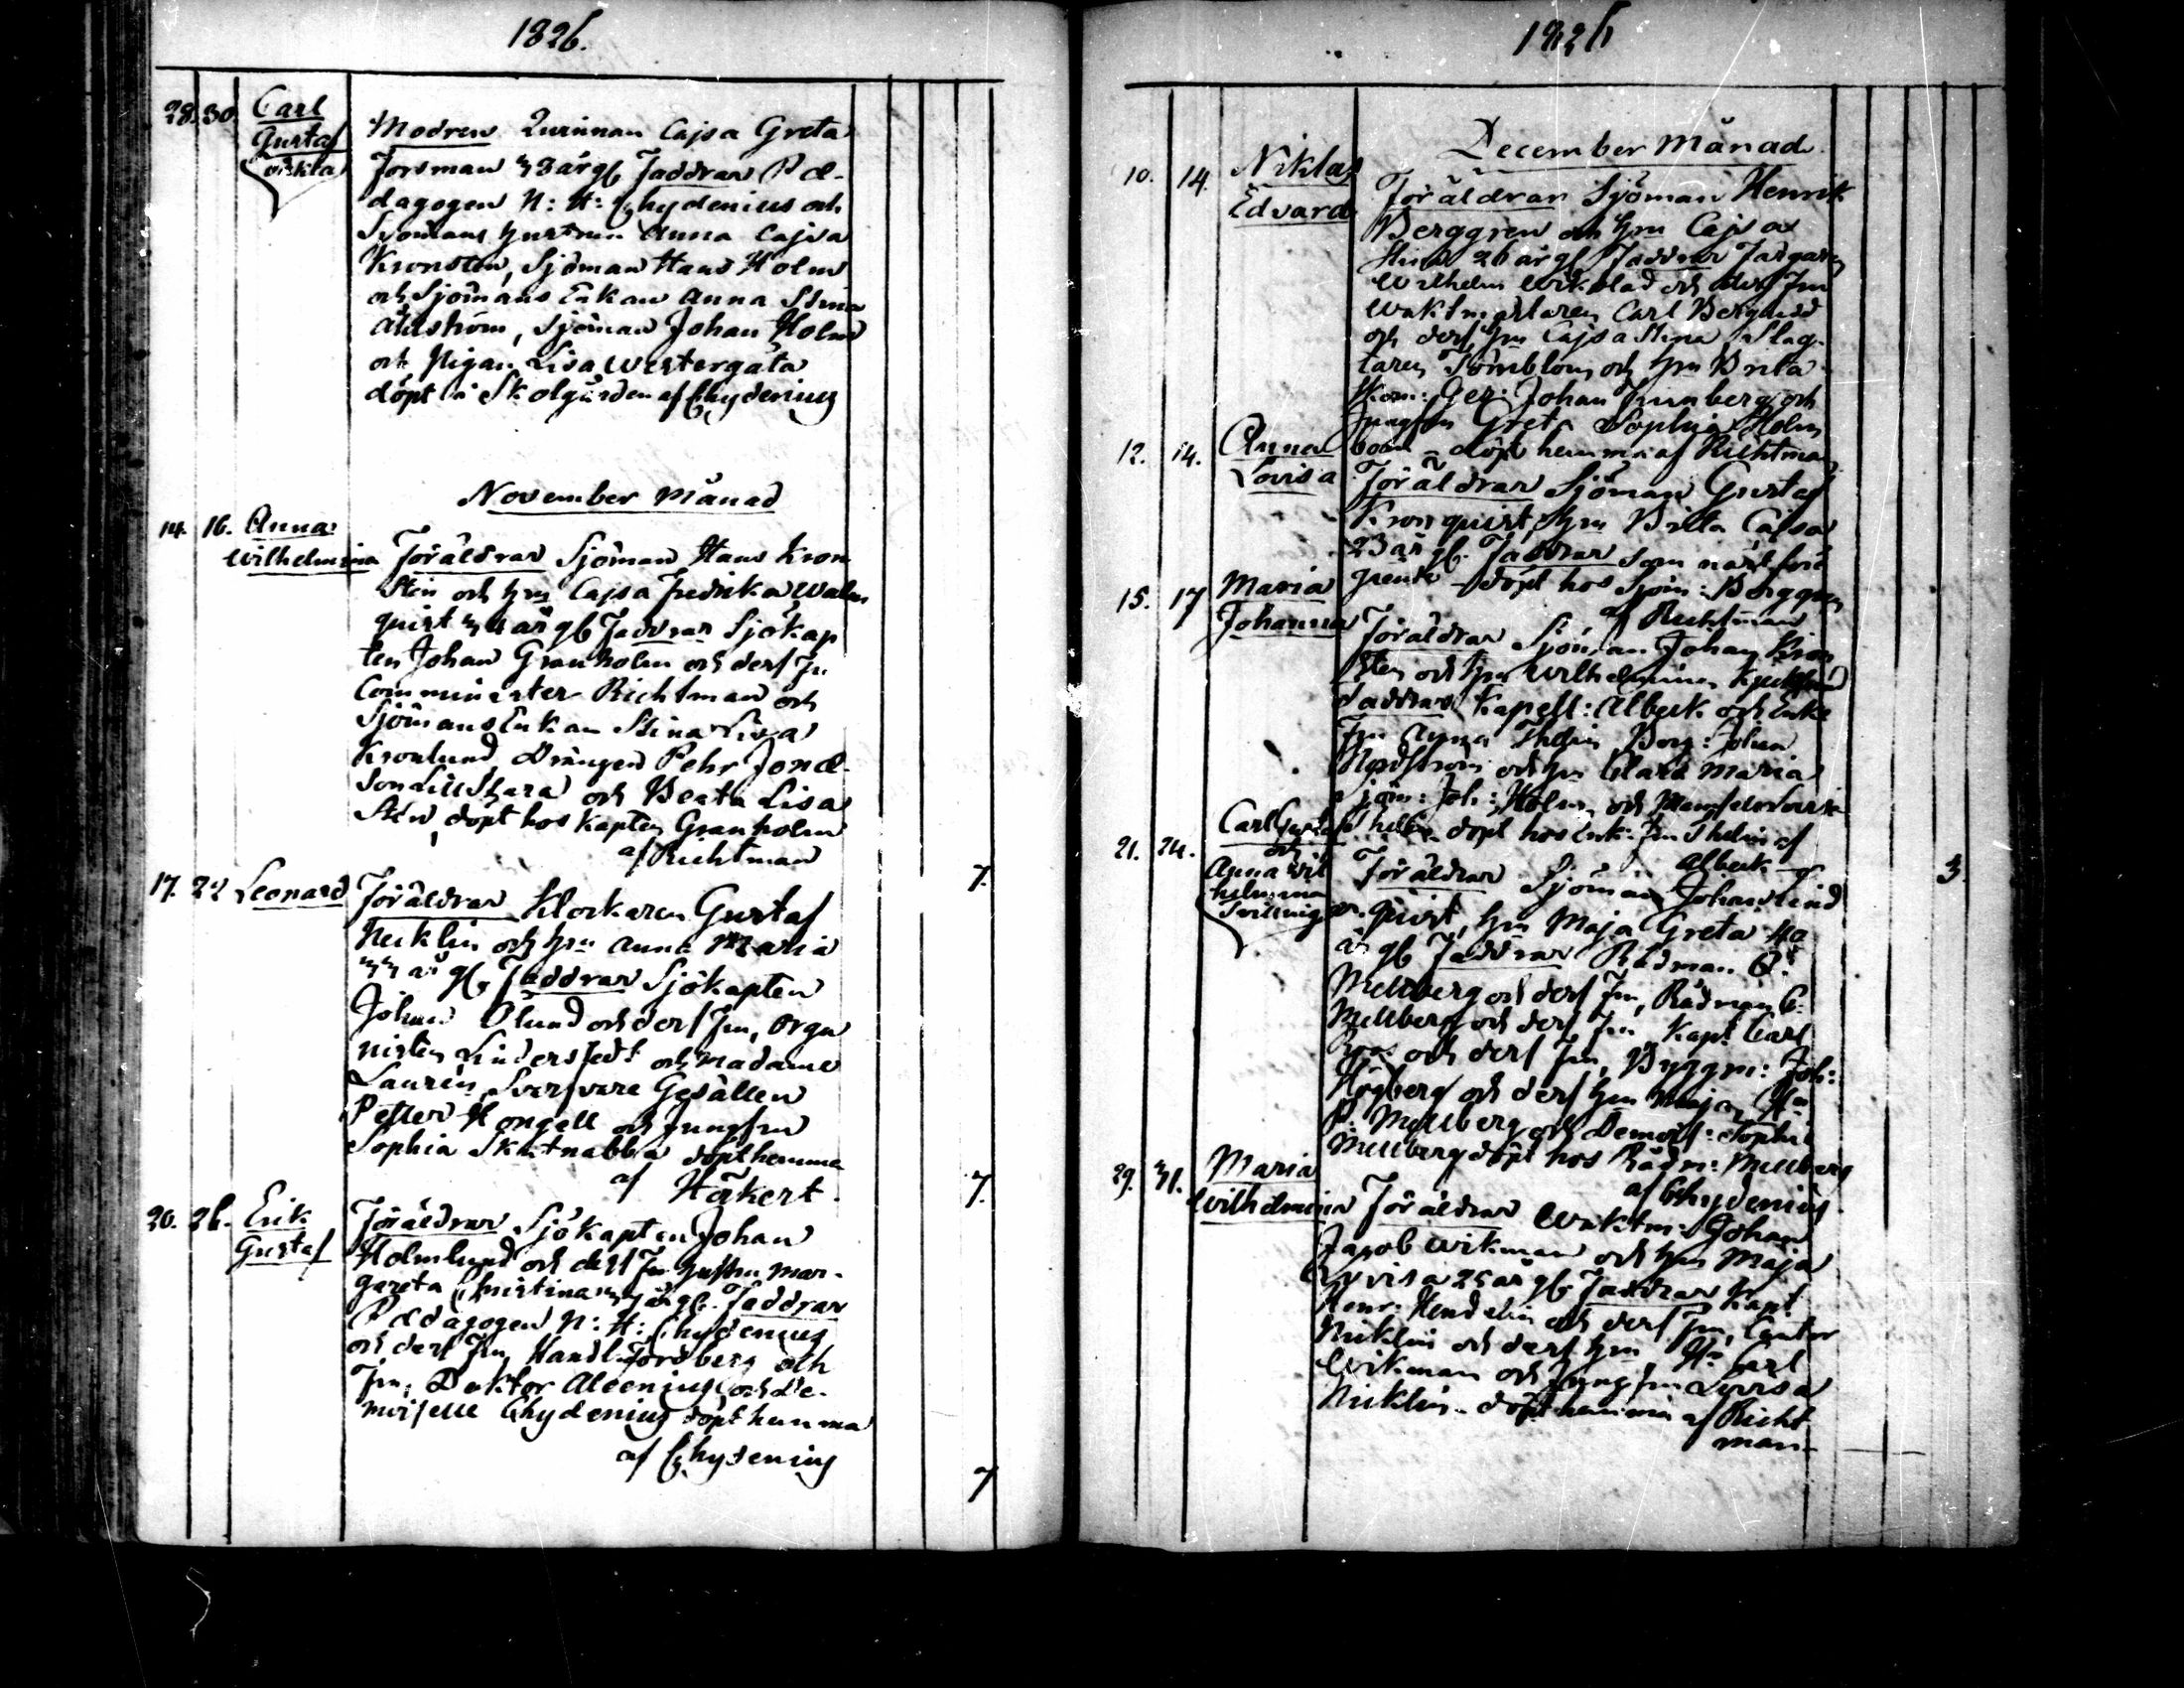 1826.
28. 30. Carl
Gustaf
oäkta
Modren Qvinnan Cajsa Greta
Forsman 33 år gl Faddrar Pæ-
dagogen N: H: Chydenius och
Sjömans hustrun Anna Cajsa
Kronsten, Sjöman Hans Holm
och Sjömans Enkan Anna Stina
Åhlström, Sjöman Johan Holm
och Pigan Lisa Westergåta
döpt i Skolgården af Chydenius
November Månad
14. 16. Anna
Wilhelmina
Föräldrar Sjöman Hans Kron
sten och hru Cajsa Fredrika
quist 34 år gl Faddrar Sjökap
ten Johan Granholm och ders Fru
Comminister Richtman och
Sjömans Enkan Stina Lisa
Kronlund, Drängen Pehr Jona-
son och Beata Lisa
döpt hos Kapten Granholm
af Richtman
17. 22 Leonard
7.
Föräldrar Klockaren Gustaf
Neiklin och hru Anna Maria
33 år gl. Faddrar Sjökapten
Johan Ölund och ders Fru, Orga
nisten Linderstedt och Madame
Laurin, Svarfvare Gesällen
Petter Hongell och jungfru
Sophia Skutnabba döpt hemma
af Hörkert.
7.
20. 26. Erik
Gustaf
Föräldrar Sjökapten Johan
Holmlund och ders Fru Mar-
gareta Christina år gl. Faddrar
Pædagogen N: H: Chydenius
och ders Fru, Handl: Fordberg och
Fru, Doktor Alcenius och De-
moiselle Chydenius döpt hemma
af Chydenius
7
1826
December Månad
10. 14. Niklas
Edvard
Föräldrar Sjöman Henrik
Berggren och hru Cajsa
Stina 26 år gl Faddrar Färgaren
Wilhelm Wikblad och ders Fru
Waktmästaren Carl Berglund
och ders hru Cajsa Stina Slag-
taren Törnblom och hru Brita
Kom: Ges: Johan och
Jungfru Greta Sophia Holm
bom - döpt hemma af Richtman
12. 14. Anna
Lovisa
Föräldrar Sjöman Gustaf
Kronquist, hru Britta Cajsa
23 år gl. Faddrar som näst före
gående döpt hos Sjöm: Berggren
af Richtman
15. 17 Maria
Johanna
Föräldrar Sjöman Johan Kron
sten och hru Wilhelmina
Faddrar Kapell: Albeck och Enke
Fru Anna Thelin, Borg: Johan
Nordström och hru Clara Maria
Sjöm: Joh: Holm och Lovisa
Thelin döpt hos Enk: Fru Thelin af
Albeck
21. 24. Carl Gustaf
och
Anna Wil
helmina
Tvillingar.
3.
Föräldrar Sjöman Johan Lind
quist, hru Maja Greta 40
år gl Faddrar Rådman
Mellberg och ders Fru, Rådman C.
Mellberg och ders Fru Kapt Carl
Roos och ders Fru, Byggm: Joh:
Högberg och ders hru Maja, Hr
P: Mellberg och Demois: Sophia
Mellberg döpt hos Rådm: Mellberg
af Chydenius.
29. 31. Maria
Wilhelmina
Föräldrar Waktm: Johan
Jacob Wikman och hru Maja
Lovisa 25 år gl Faddrar Kapt
Henr: och ders Fru, Cantor
Niklin och ders hru, Hr Carl
Wikman och Jungfru Lovisa
Niklin - döpt hemma af Richt
man-